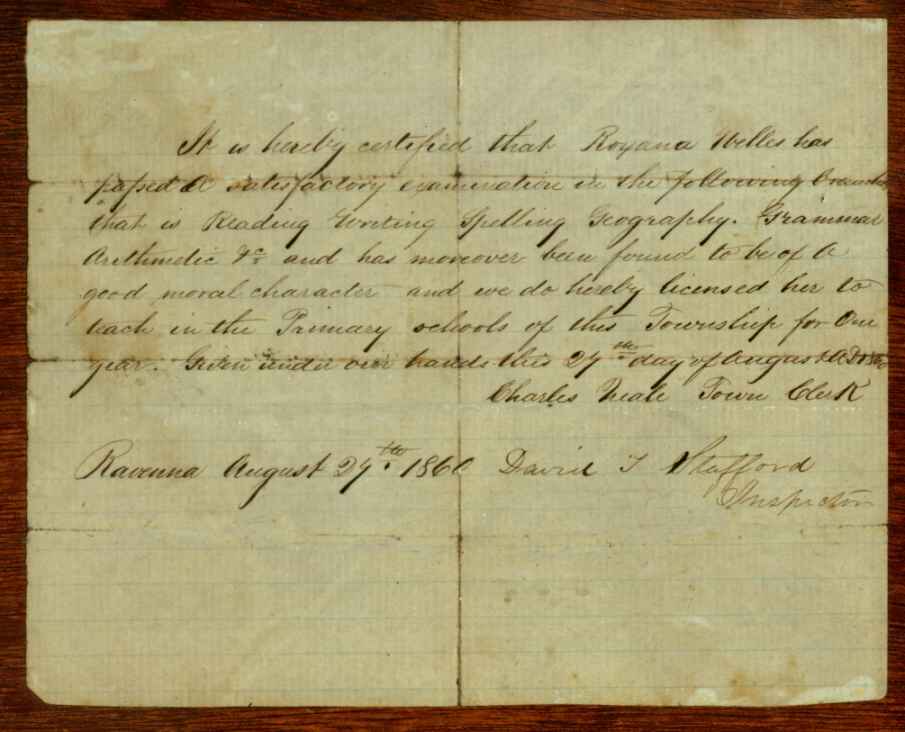 It is hereby certified that Royana Welles has
passed A satisfactory examination in the following branches
that is Reading Writing Spelling Geography. Grammar
Arithmetic &c. and has moreover been found to be of A
good moral character and we do hereby licensed her to
teach in the Primary schools of this Township for One
year. Given under our hands this 27th day of August AD 1860
Charles Neale Town Clerk
Ravenna August 27th 1860 David T Stafford
Inspector